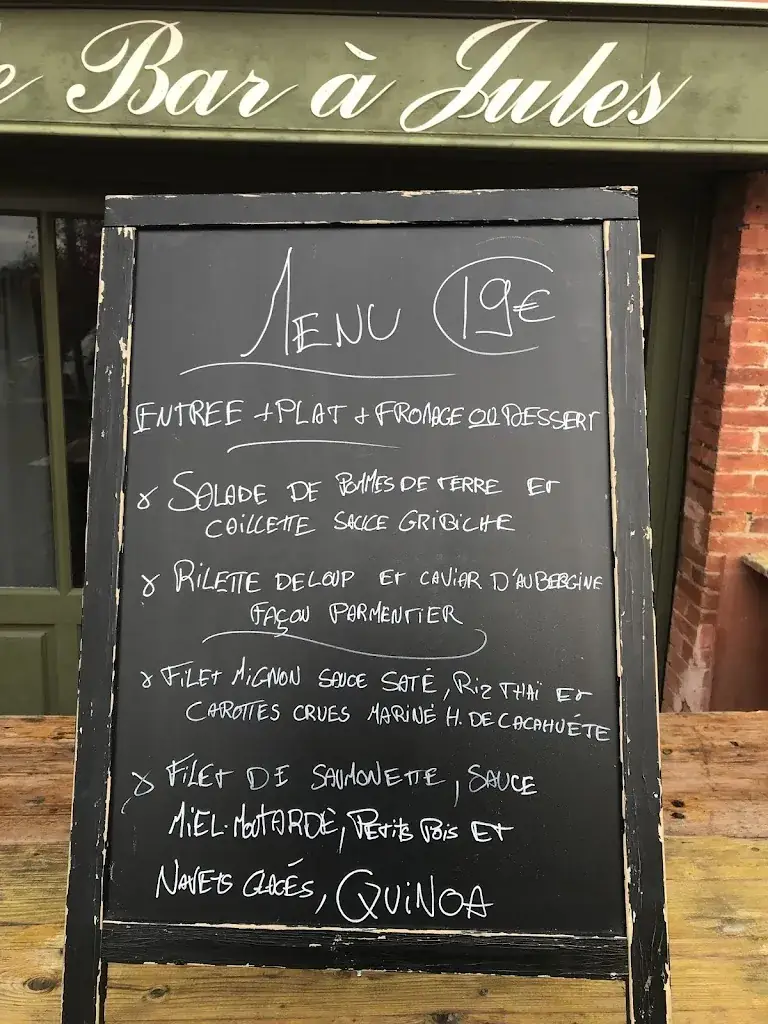 e Bar à Jules
MENU 19€
ENTREE + PLAT + FROMAGE OU DESSERT
SALADE DE POMMES DE TERRE ET
COILLETTE SAUCE GRIBICHE
RILETTE DE LOUP ET CAVIAR D'AUBERGINE
FAÇON PARMENTIER
FILET MIGNON SAUCE SATÉ, RIZ THAÏ ET
CAROTTES CRUES MARINÉ H. DE CACAHUÉTE
FILET DE SAUMONETTE, SAUCE
MIEL-MOUTARDE, PETITS POIS ET
NAVETS GLACÉS, QUINOA